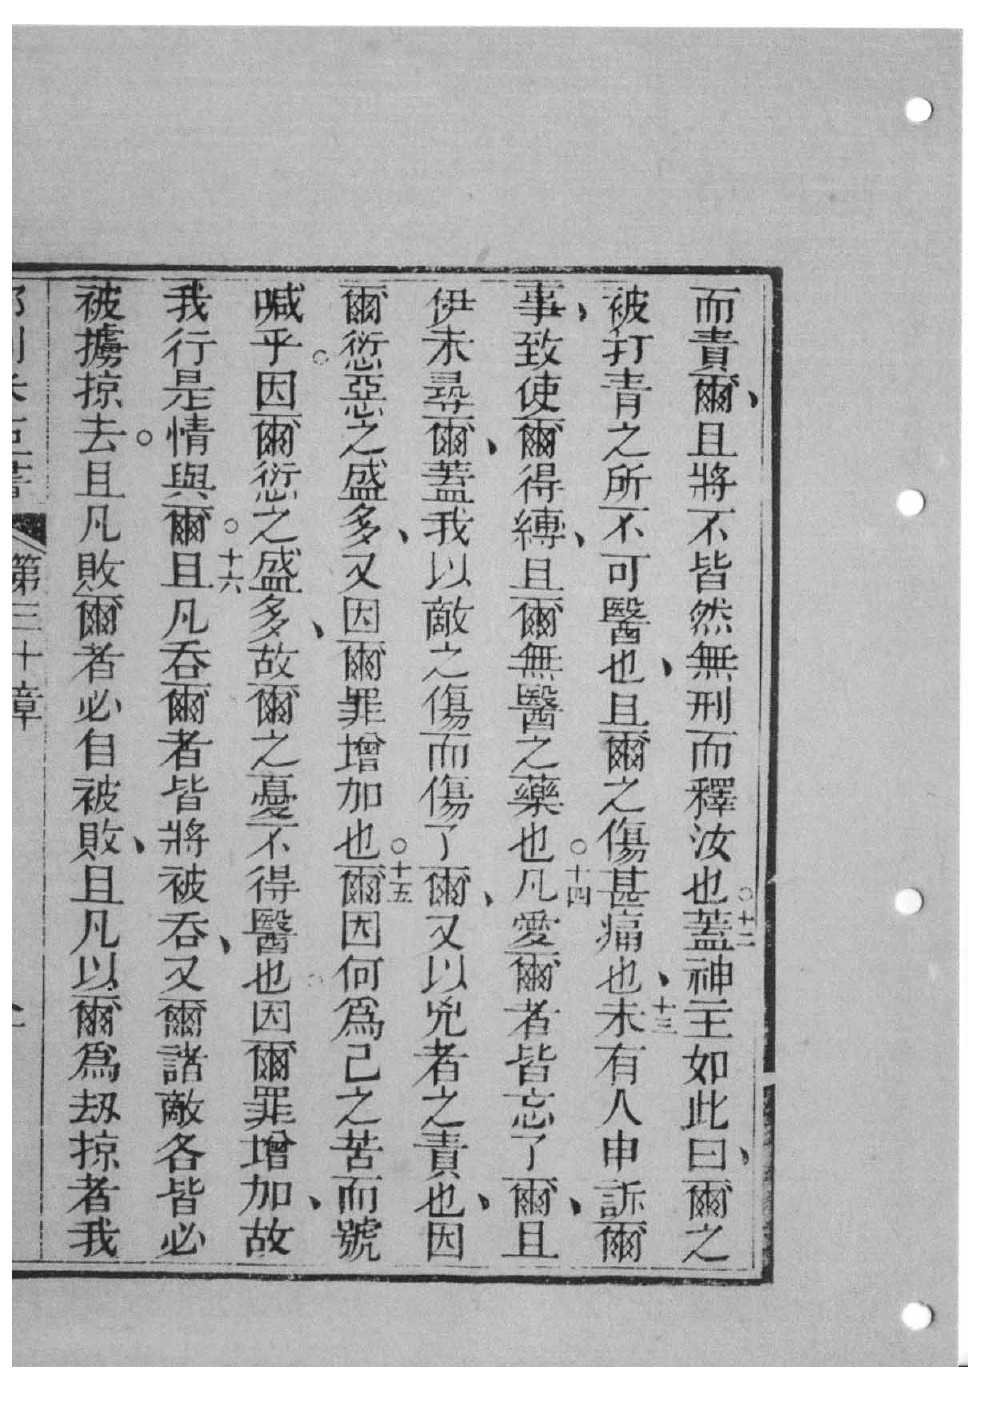 而責爾、且將不皆然無刑而釋汝也。十二蓋神主如此曰、爾之
被打青之所不可醫也、且爾之傷甚痛也、十三未有人申訴爾
事、致使爾得縛、且爾無醫之藥也。十四凡愛爾者皆忘了爾、且
伊未尋爾、蓋我以敵之傷而傷了爾、又以兇者之責也、因
爾愆惡之盛多、又因爾罪增加也。十五爾因何爲己之苦而號
喊乎。因爾愆之盛多、故爾之憂不得醫也因爾罪增加、故
我行是情與爾。十六且凡吞爾者皆將被吞、又爾諸敵各皆必
被擄掠去。且凡敗爾者必自被敗、且凡以爾爲刼掠者我
第三十章